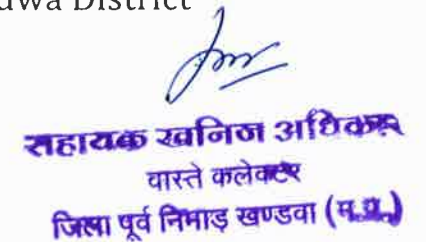 dwa District
सहायक खनिज अधिकारी
वास्ते कलेक्टर
जिला पूर्व निमाड़ खण्डवा (म.प्र.)